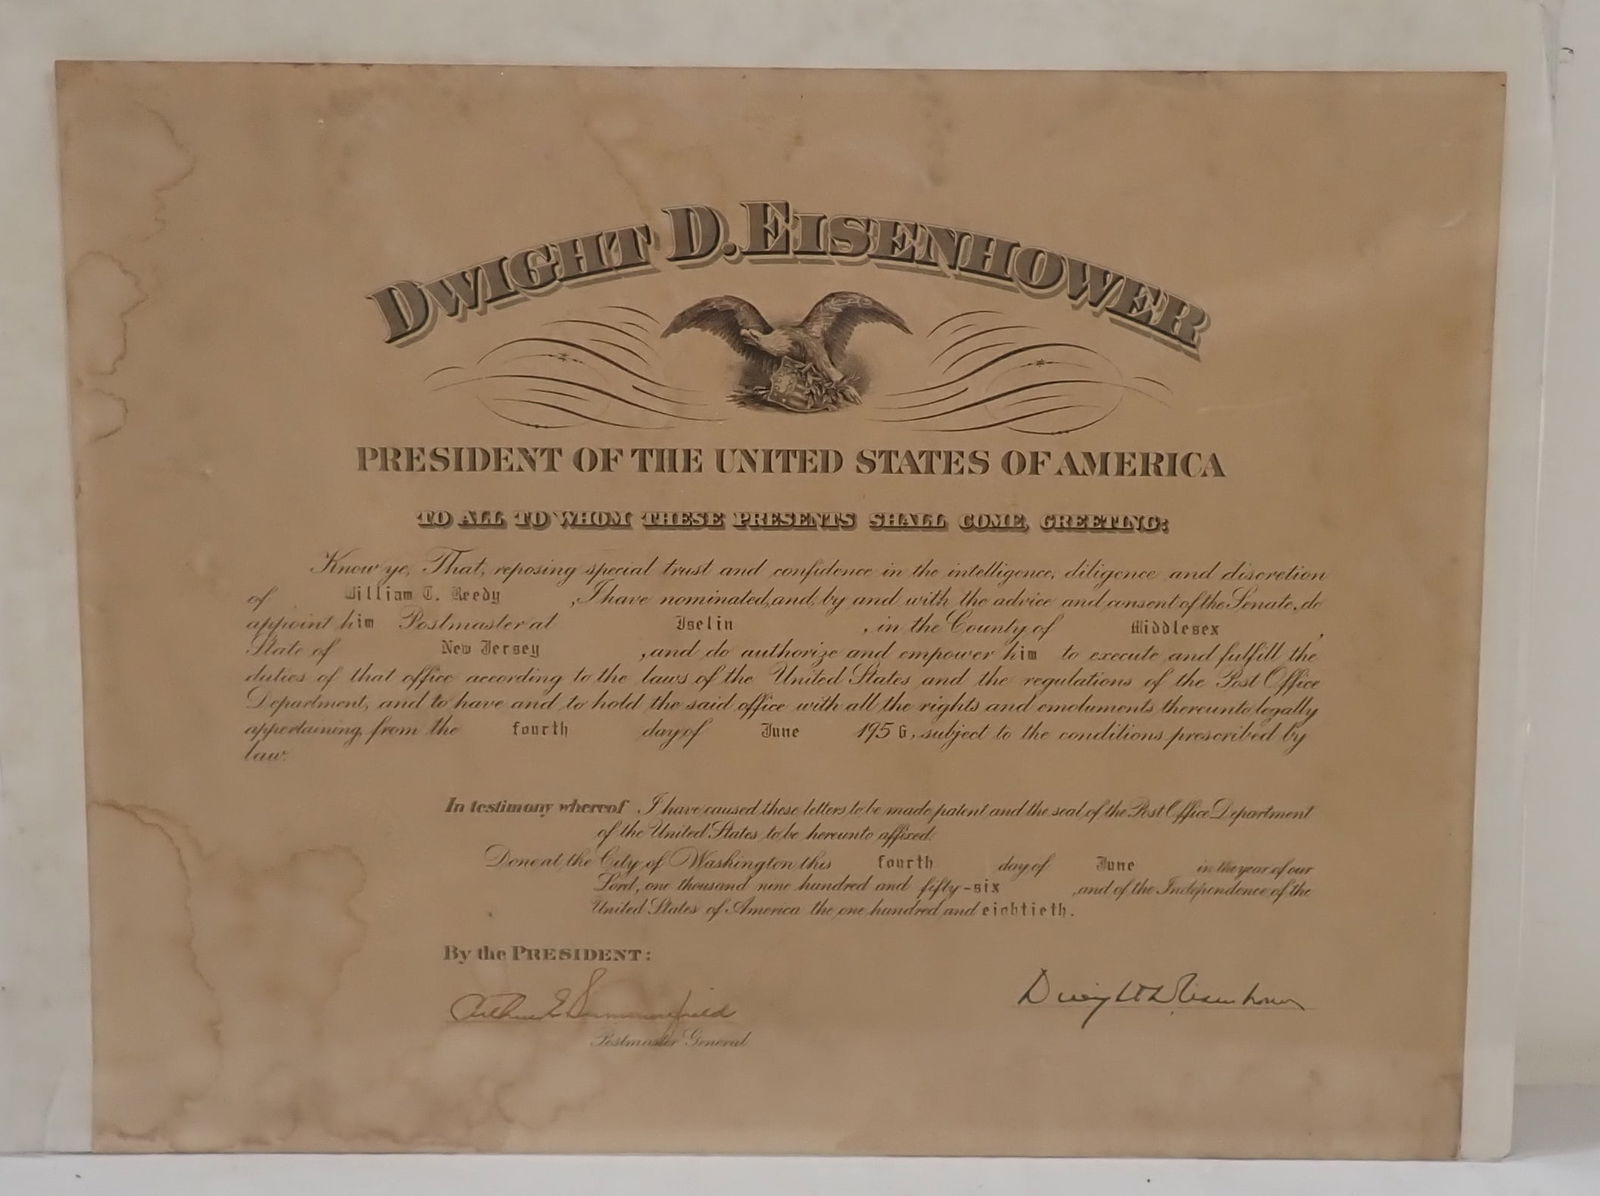 DWIGHT D. EISENHOWER
PRESIDENT OF THE UNITED STATES OF AMERICA
TO ALL TO WHOM THESE PRESENTS SHALL COME, GREETING:
Know ye, That, reposing special trust and confidence in the intelligence, diligence and discretion
of William T. Reedy, I have nominated, and, by and with the advice and consent of the Senate, do
appoint him Postmaster at Iselin, in the County of Middlesex,
State of New Jersey, and do authorize and empower him to execute and fulfill the
duties of that office according to the laws of the United States and the regulations of the Post Office
Department, and to have and to hold the said office with all the rights and emoluments thereunto legally
appertaining, from the fourth day of June 1956, subject to the conditions prescribed by
law.
In testimony whereof I have caused these letters to be made patent and the seal of the Post Office Department
of the United States to be hereunto affixed.
Done at the City of Washington this fourth day of June in the year of our
Lord, one thousand nine hundred and fifty-six, and of the Independence of the
United States of America the one hundred and eightieth.
By the PRESIDENT:
Arthur E Summerfield
Dwight D. Eisenhower
Postmaster General